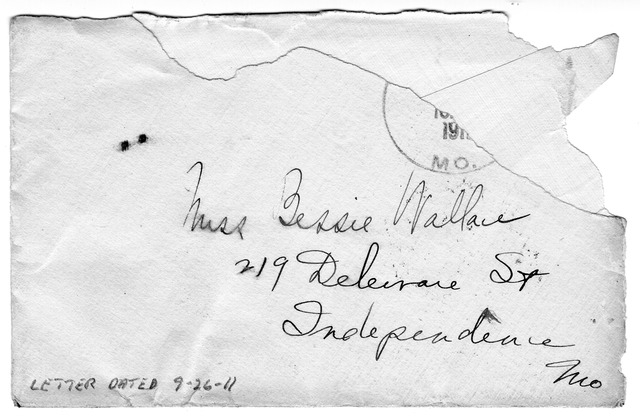 191
MO.
Miss Bessie Wallace
219 Deleware St
Independence
Mo
LETTER DATED 9-26-11